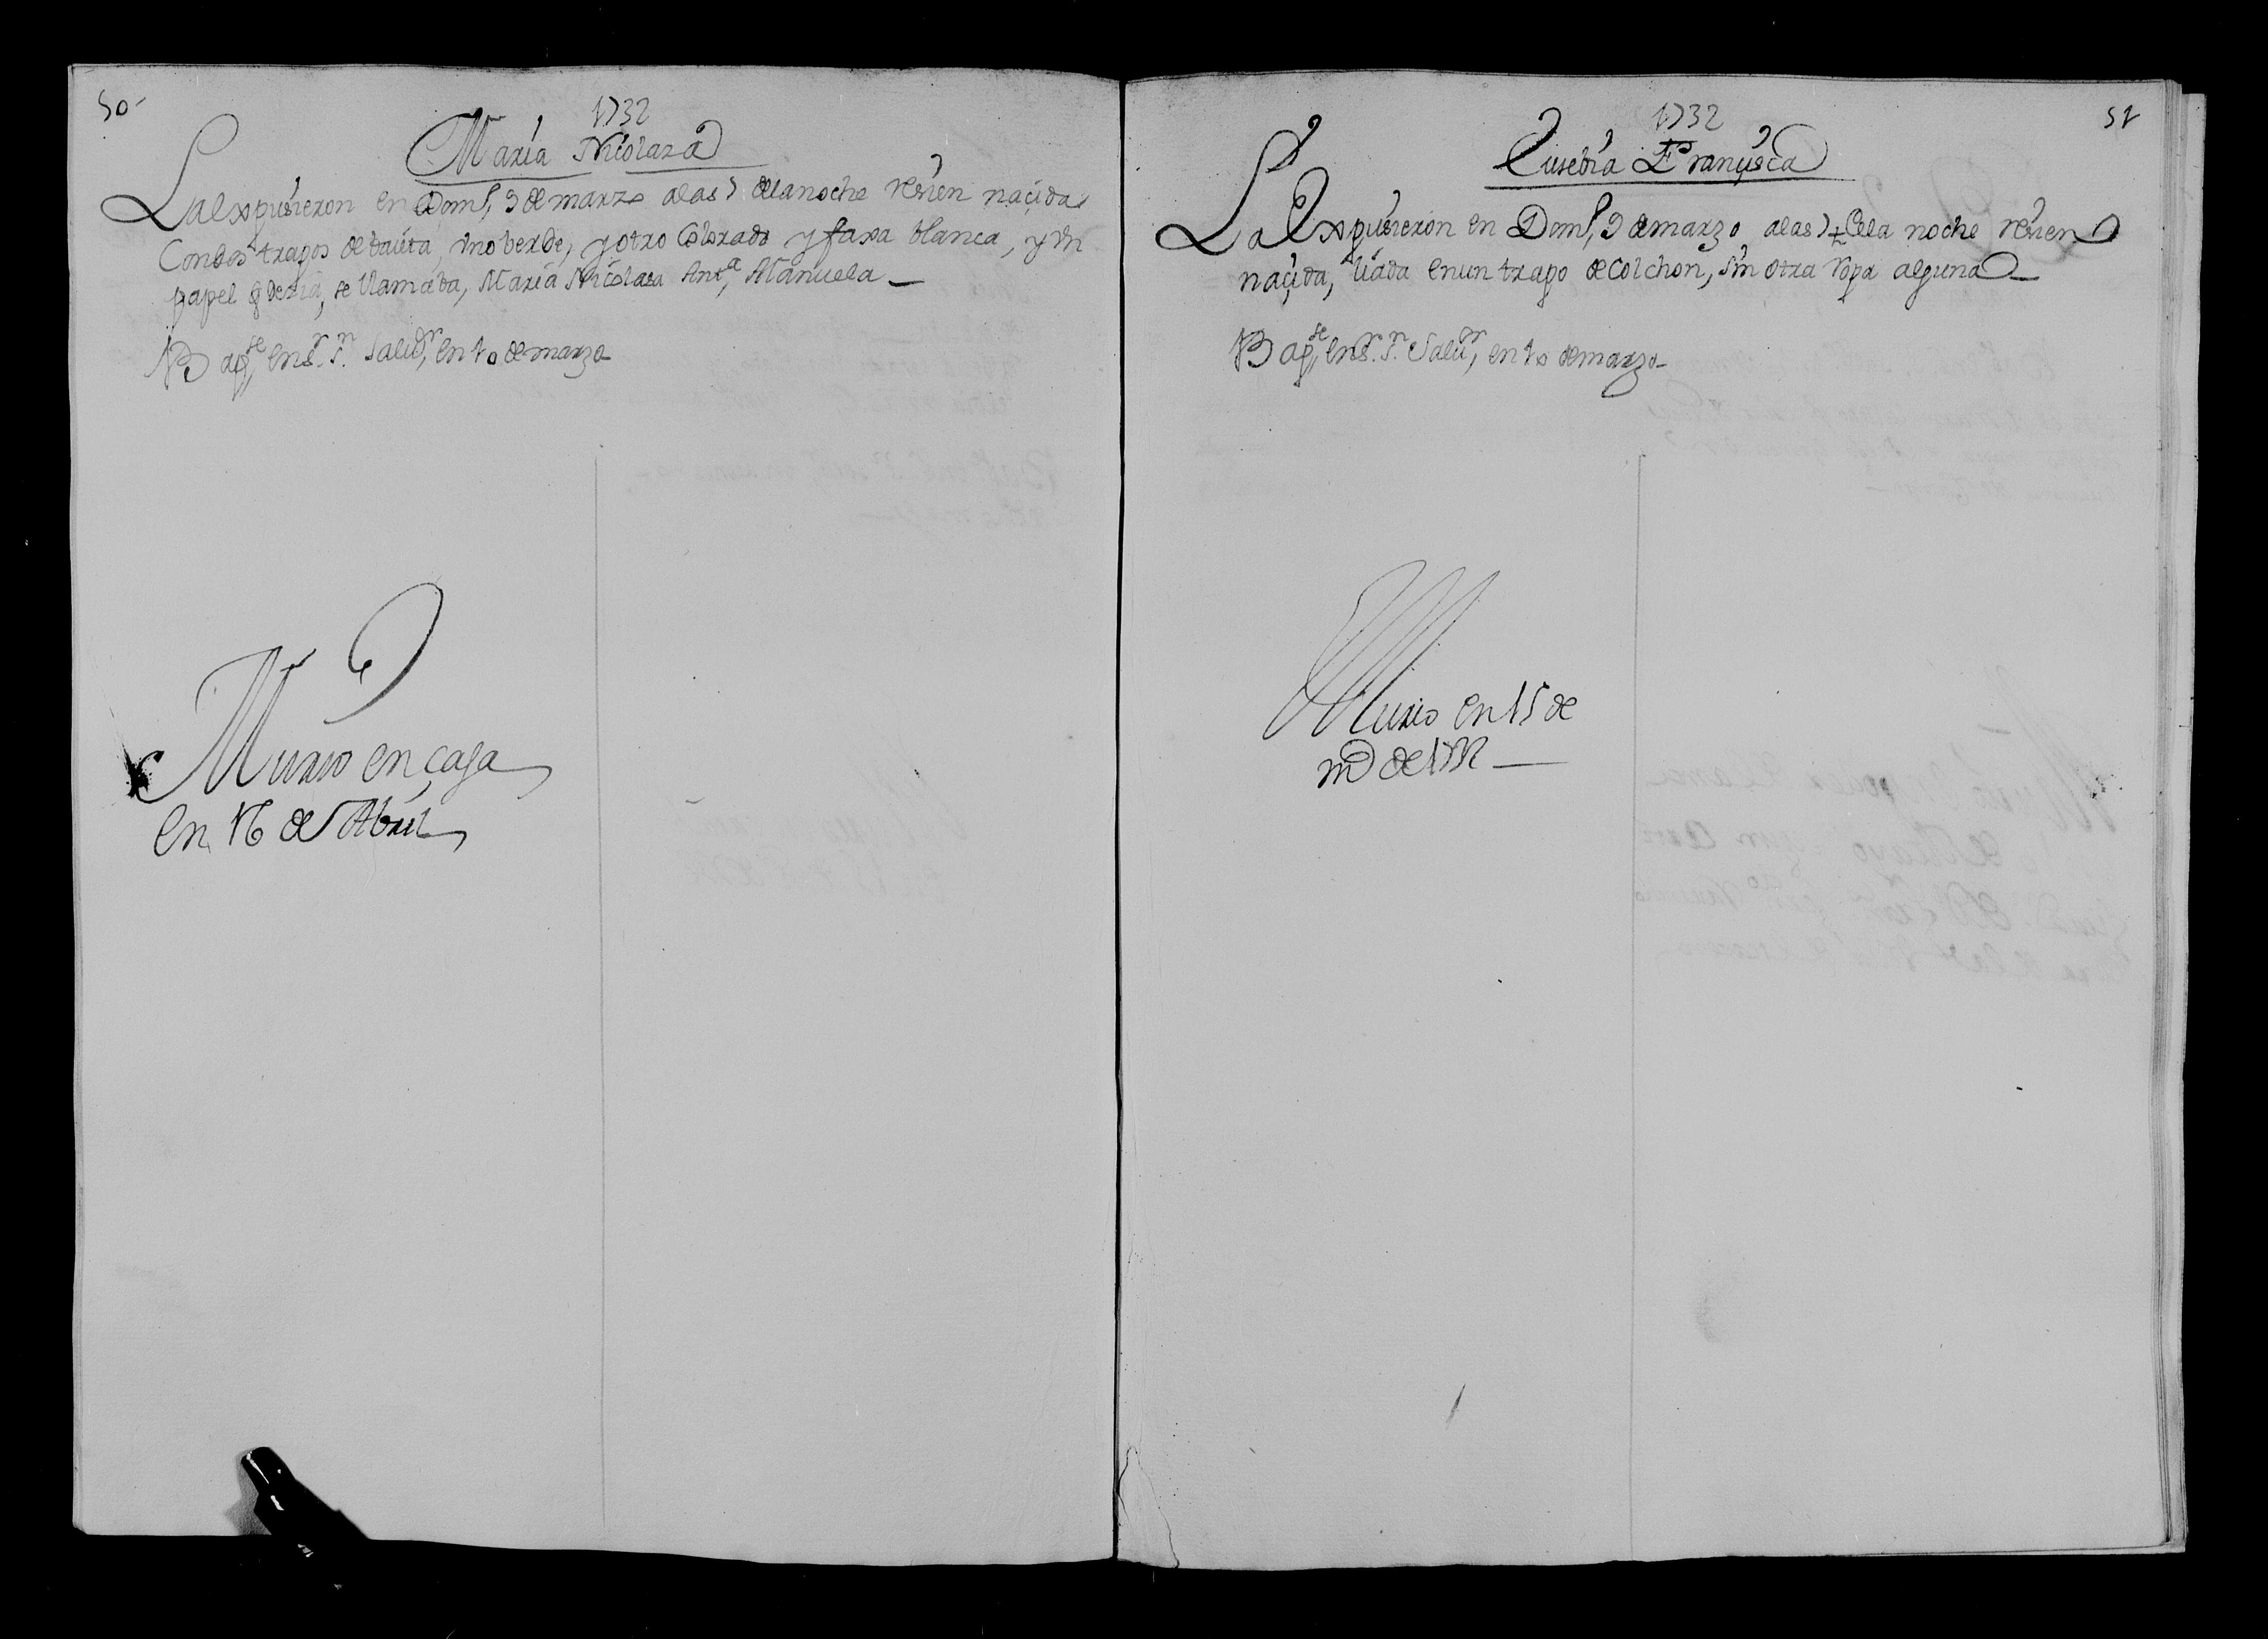 50
1732
Maria Nicolasa
La expusieron en Domº, 9 de marzo a las 7 de la noche resien naçida
Con dos trapos de baieta, vno verde, y otro Colorado y faxa blanca, y vn
papel q desia, se llamaba, Maria Nicolasa Antª, Manuela
Bapse, en Sr. Sn. Saludr, en 10 de marzo
Murio en casa
en 16 de Abril
51
1732
Eusebia Françisca
La Expusieron en Domº, 9 de marzo a las 7 de la noche resien
naçida, liada en un trapo de Colchon, sin otra ropa alguna
Bapse, en Sr. Sn. Salur, en 10 de marzo
Murio en 15 de
mo de 1732